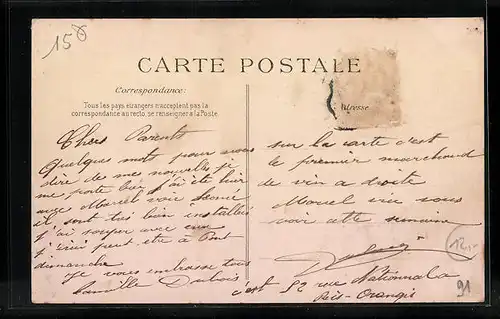 15
CARTE POSTALE
Correspondance:
Tous les pays étrangers n'acceptent pas la
correspondance au recto, se renseigner à la Poste.
Adresse
Chers Parents
Quelques mot pour vous
dire, de mes nouvelles je
me porte bien j'ai été hier
avec Marcel voir
il sont très bien installés
j'ai souper avec eux
j'irai peut etre a Pont
dimanche
Je vous embrasse tous
Camille Dubois
sur la carte c'est
le premier marchand
de vin a droite
Marcel vous
voir cette semaine
c'est 52 rue Nationnal a
Ris-Orangis
12,-
91